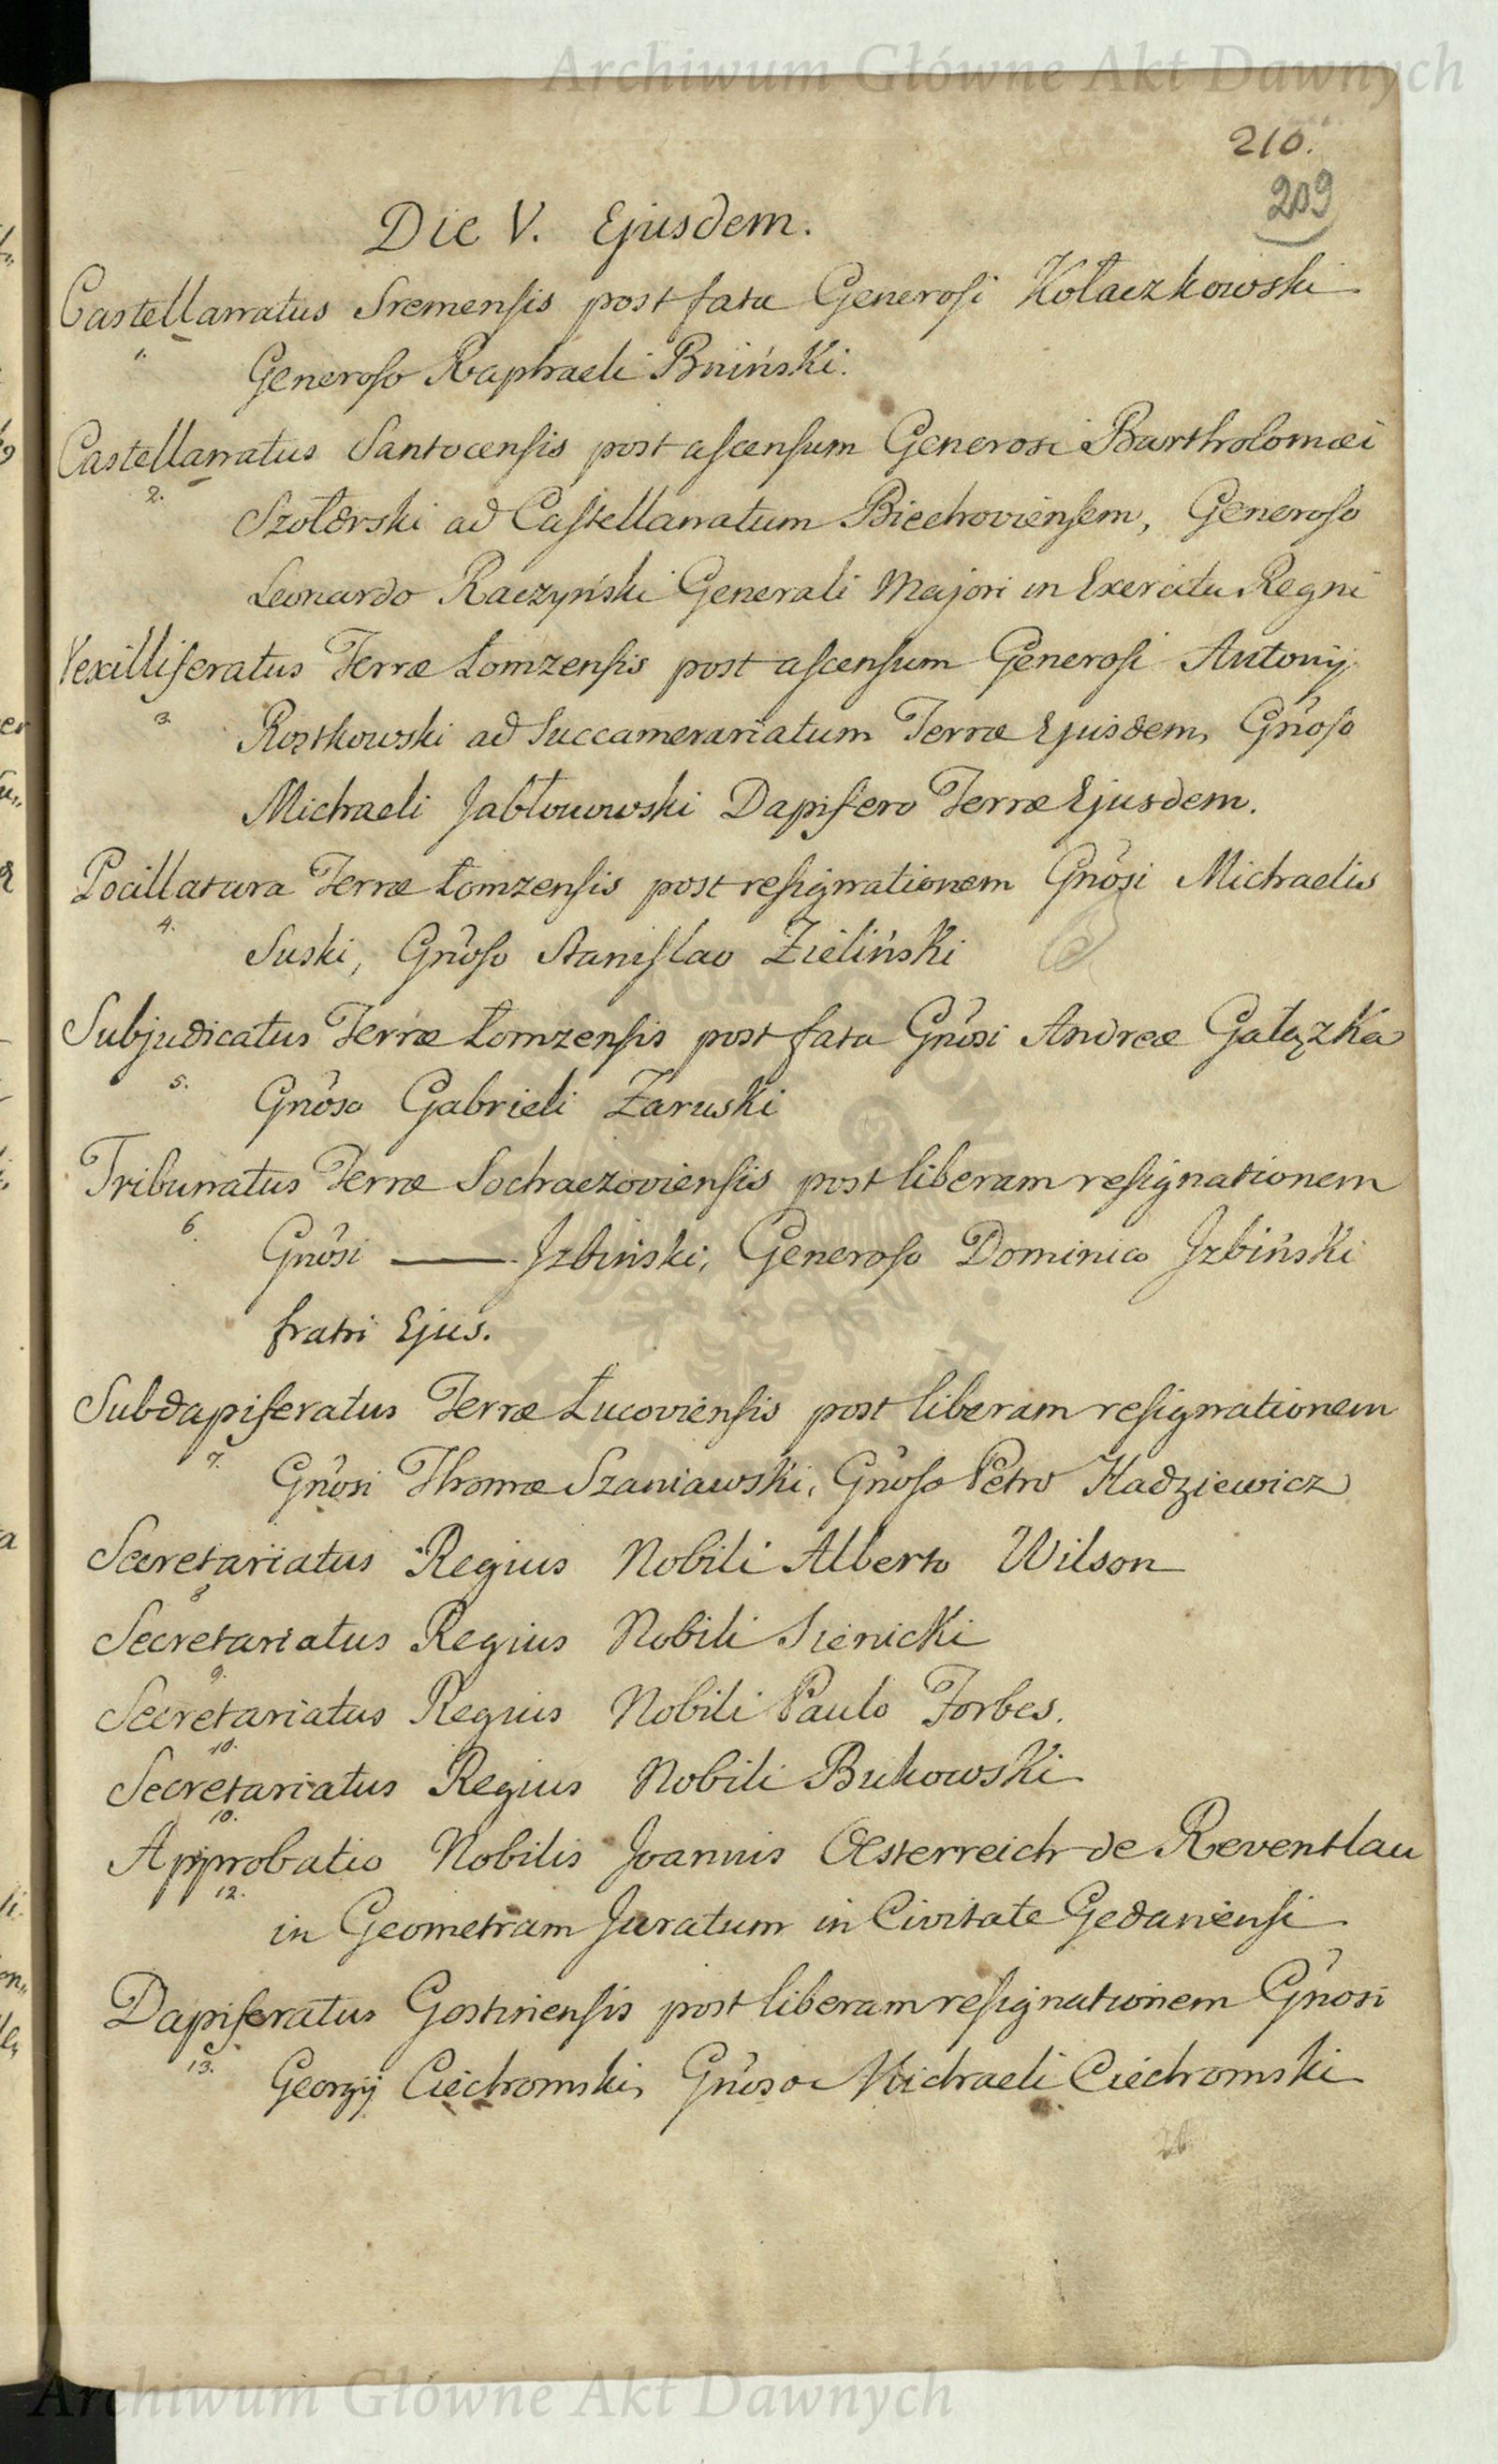 Archiwum Główne Akt Dawnych
210.
209
Die V. Ejusdem.
Castellanatus Sremensis post fata Generosi Kołaczkowski
Generoso Raphaeli Bniński.
Castellanatus Santocensis post ascensum Generosi Bartholomæi
2.
Szołdrski ad Castellanatum Biechoviensem, Generoso
Leonardo Raczyński Generali Majori in Exercitu Regni
Vexilliferatus Terræ Łomzensis post ascensum Generosi Antonij
3.
Rostkowski ad Succamerariatum Terræ Ejusdem, Gnoso
Michaeli Jabłonowski Dapifero Terræ Ejusdem.
Pocillatura Terræ Łomzensis post resignationem Gnosi Michaelis
4.
Suski, Gnoso Stanislao Zieliński
Subjudicatus Terræ Łomzensis post fata Gnosi Andreæ Gałązka
5.
Gnoso Gabrieli Zaruski
Tribunatus Terræ Sochaczoviensis post liberam resignationem
6.
Gnosi —— Jzbiński, Generoso Dominico Jzbiński
fratri Ejus.
Subdapiferatus Terræ Łucoviensis post liberam resignationem
7.
Gnosi Thomæ Szaniawski, Gnoso Petro Hadziewicz
Secretariatus Regius Nobili Alberto Wilson
8
Secretariatus Regius Nobili Sienicki
9.
Secretariatus Regius Nobili Paulo Forbes.
10.
Secretariatus Regius Nobili Bukowski
10.
Approbatio Nobilis Joannis Oesterreich de Reventlau
12.
in Geometram Juratum in Civitate Gedanensi
Dapiferatus Gostinensis post liberam resignationem Gnosi
13.
Georgij Ciechomski, Gnoso Michaeli Ciechomski
Archiwum Główne Akt Dawnych